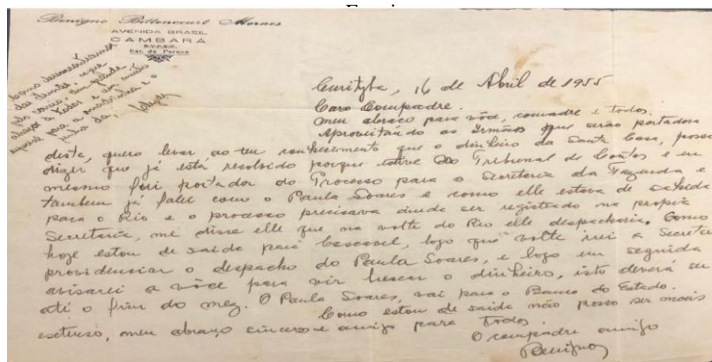 Benigno Bittencourt Moraes
AVENIDA BRASIL
CAMBARÁ
R.V.P.S.C.
Est. do Paraná
Curityba, 16 de Abril de 1955
Caro Compadre.
Meu abraço para você, comadre e todos.
Aproveitando as Irmãos que serão portadoras
deste, quero levar ao teu conhecimento que o dinheiro da Santa Casa, posso
dizer que já está resolvido porque estive no Tribunal de Contos e eu
mesmo fui portador do Processo para a Secretaria da Fazenda e
tambem já falei com o Paula Soares e como elle estava de sahida
para o Rio e o processo precisava ainda ser registado na propria
Secretaria, me disse elle que na volta do Rio elle despacharia. Como
hoje estou de saida para Cascavel, logo que volte irei a Secretaria
providenciar o despacho do Paula Soares, e logo em seguida
avisarei a você para vir buscar o dinheiro, isto deverá ser
até o fim do mez. O Paula Soares, vai para o Banco do Estado.
Como estou de saida não posso ser mais
extenso, meu abraço sincero e amigo para todos.
O compadre amigo
Benigno